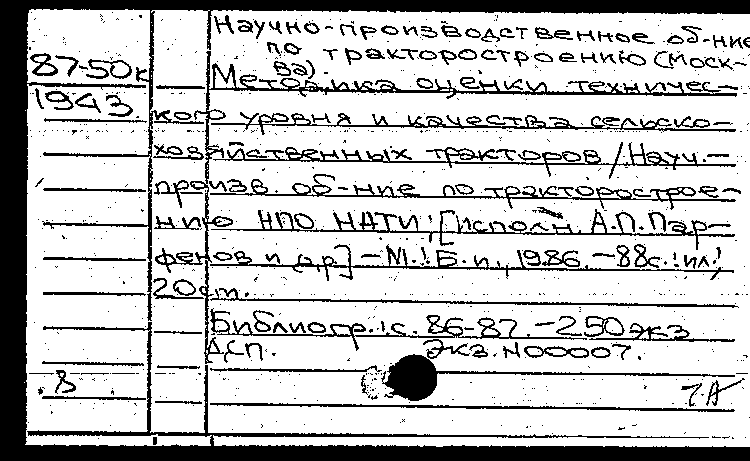 Научно-производственное об-ние
по тракторостроению (Моск-
ва).
87-50к
Методика оценки техничес-
1943
кого уровня и качества сельско-
хозяйственных тракторов / Науч.-
произв. об-ние по тракторострое-
нию НПО НАТИ; [исполн. А.П. Пар-
фенов и др.] - М.: Б. и., 1986. - 88с.: ил.;
20 см.
Библиогр.: с. 86-87. - 250 экз
ДСП. Экз. N00007.
8